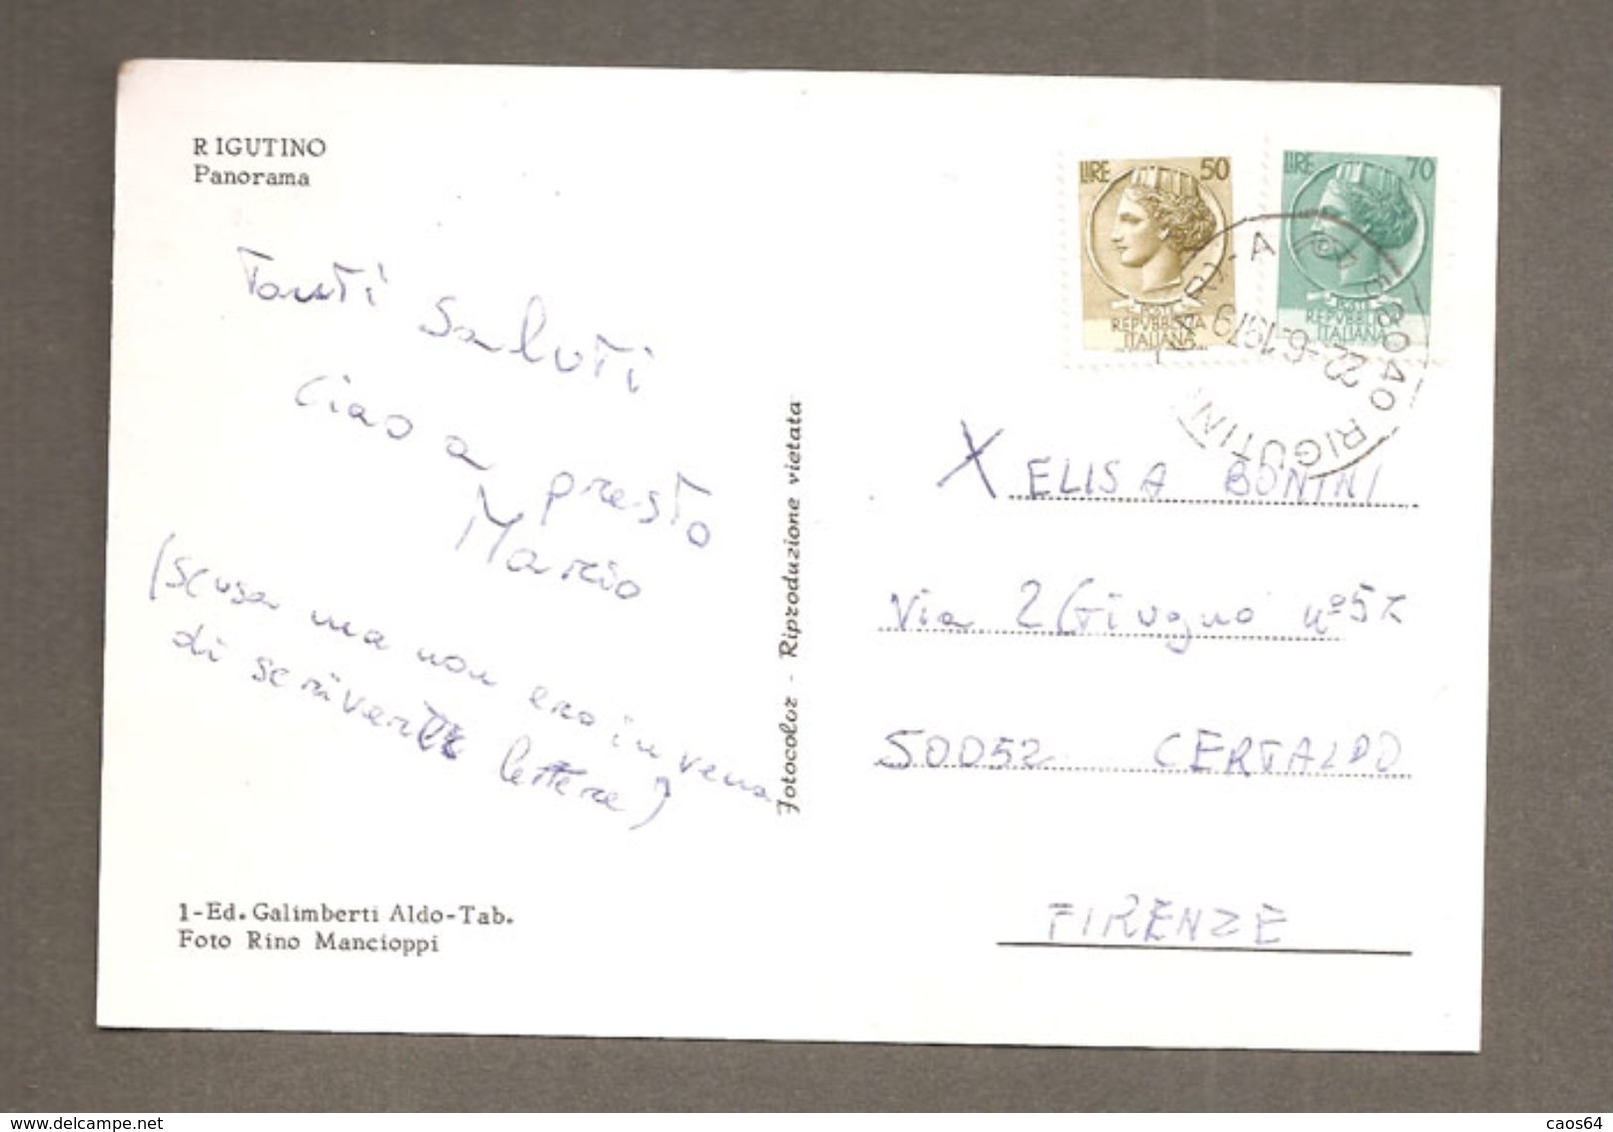 RIGUTINO
Panorama
Tanti Saluti
Ciao a presto
Mario
(scusa ma non ero in vena
di scrivere lettere)
1-Ed. Galimberti Aldo-Tab.
Foto Rino Mancioppi
Fotocolor - Riproduzione vietata
LIRE 50
POSTE
REPVBBLICA
ITALIANA
LIRE 70
POSTE
REPVBBLICA
ITALIANA
22-6 1979
RIGUTIN
X ELISA BONINI
Via 2 Giugno nº
50052 CERTALDO
FIRENZE
caos64